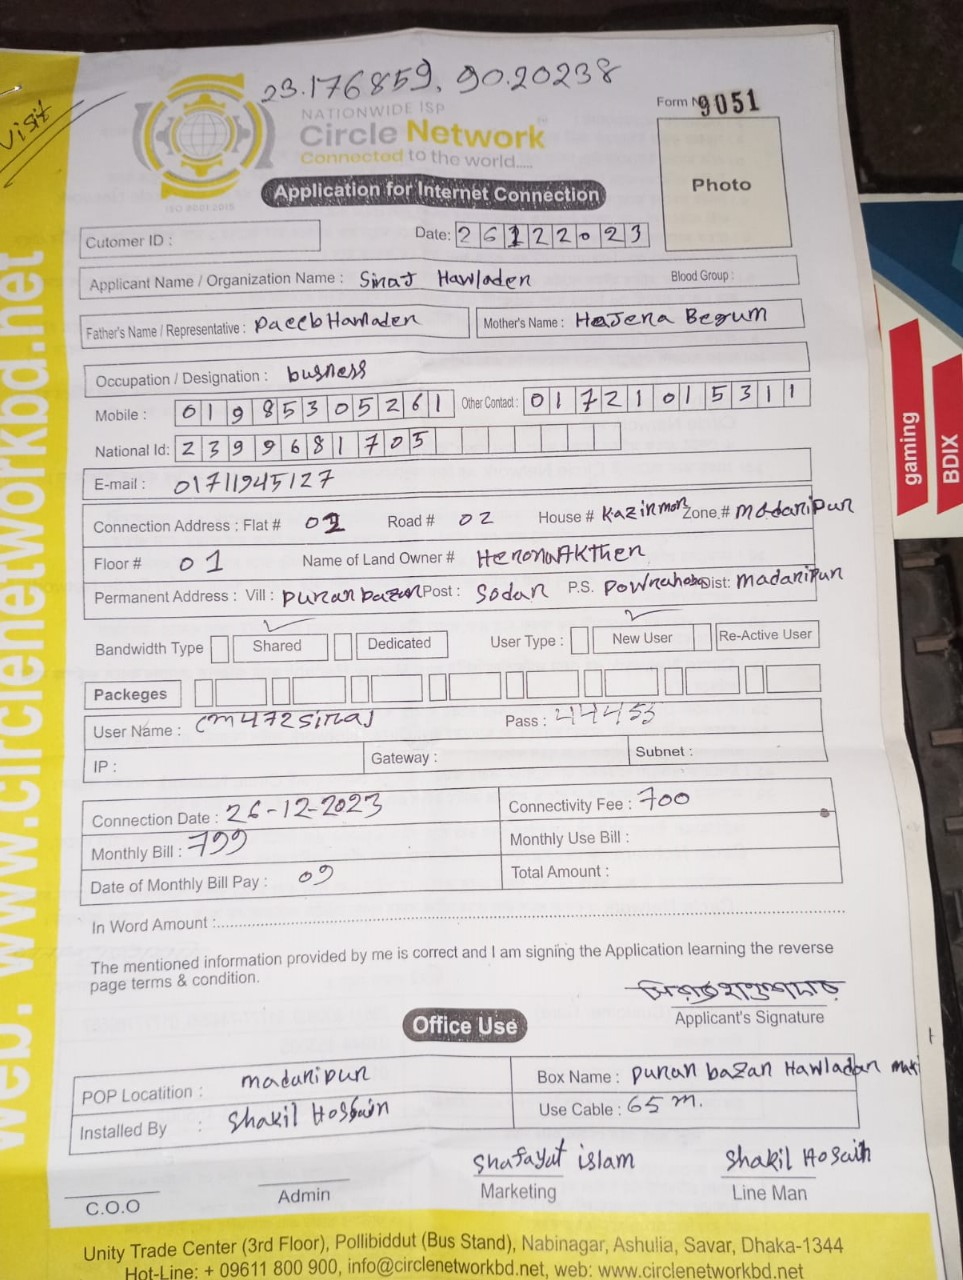 visit
23.176859, 90.20238
NATIONWIDE ISP
Form № 9051
Circle Network
Connected to the world.....
ISO 9001:2015
Photo
Application for Internet Connection
Cutomer ID :
Date: 26122023
Applicant Name / Organization Name : Sinaj Hawladen
Blood Group :
Father's Name / Representative :
Mother's Name : HaJena Begum
Occupation / Designation : busness
Mobile : 01985305261
Other Contact : 01721015311
National Id: 2399681705
E-mail : 01711945127
Connection Address : Flat # Road # 02 House # Kazinmon Zone # madanipun
Floor # 01 Name of Land Owner #
Permanent Address : Vill : punan bazan Post : Sodan P.S. Dist: madanipun
Bandwidth Type Shared Dedicated User Type : New User Re-Active User
Packeges
User Name : cm472sinaj Pass : 44455
IP : Gateway : Subnet :
Connection Date : 26-12-2023 Connectivity Fee : 700
Monthly Bill : 799 Monthly Use Bill :
Date of Monthly Bill Pay : 09 Total Amount :
In Word Amount :
The mentioned information provided by me is correct and I am signing the Application learning the reverse
page terms & condition.
সিরাজ হাওলাদার
Applicant's Signature
Office Use
POP Locatition : madanipun
Box Name : punan bazan Hawladan
Installed By : Shakil Hossain
Use Cable : 65 m.
Shafayut islam
Shakil Hosain
C.O.O
Admin
Marketing
Line Man
Unity Trade Center (3rd Floor), Pollibiddut (Bus Stand), Nabinagar, Ashulia, Savar, Dhaka-1344
Hot-Line: + 09611 800 900, info@circlenetworkbd.net, web: www.circlenetworkbd.net
web: www.circlenetworkbd.net
gaming
BDIX